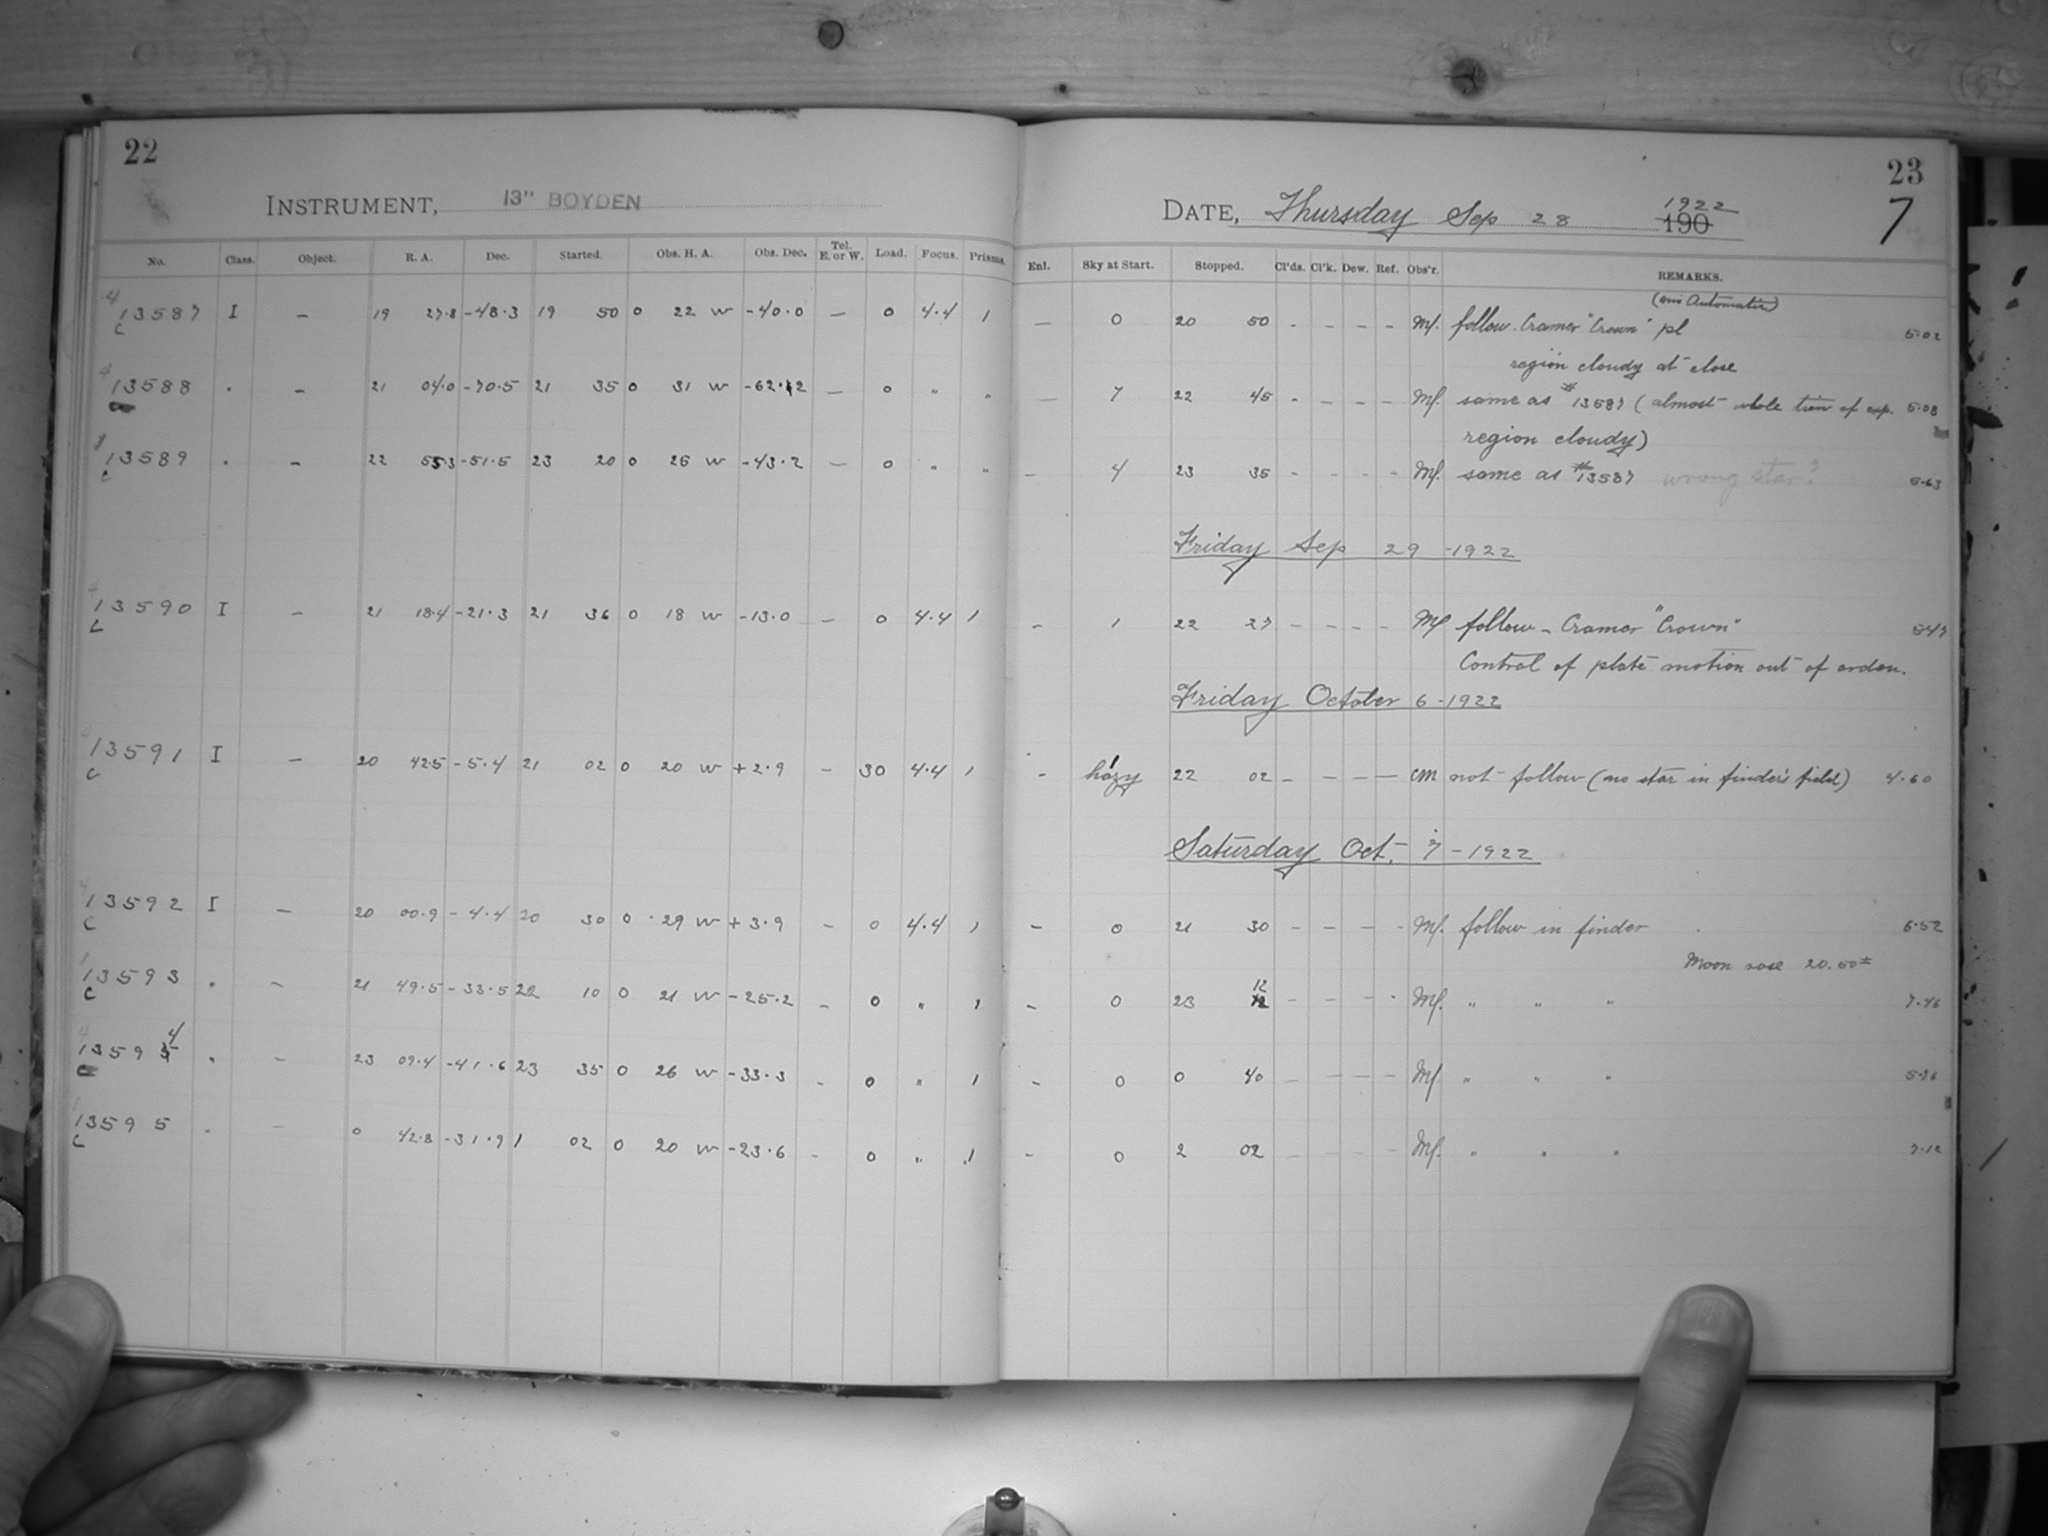 22
INSTRUMENT, 13" BOYDEN
No. Class. Object. R. A. Dec. Started. Obs. H. A. Obs. Dec. Tel. E. or W. Load. Focus. Prisms.
13587 I – 19 27.8 -48.3 19 50 0 22 W -40.0 – 0 4.4 1
C
13588 " – 21 04.0 -70.5 21 35 0 31 W – 0 " "
13589 " – 22 55.3 -51.5 23 20 0 26 W -43.2 – 0 " "
C
13590 I – 21 18.4 -21.3 21 36 0 18 W -13.0 – 0 4.4 1
C
13591 I – 20 42.5 -5.4 21 02 0 20 W +2.9 – 30 4.4 1
C
13592 I – 20 00.9 -4.4 20 30 0 29 W +3.9 – 0 4.4 1
C
13593 " – 21 49.5 -33.5 22 10 0 21 W -25.2 – 0 " 1
C
13594 " – 23 09.4 -41.6 23 35 0 26 W -33.3 – 0 " 1
13595 " – 0 42.8 -31.9 1 02 0 20 W -23.6 – 0 " 1
C
23
7
DATE, Thursday Sep 28 1922
190
Enl. Sky at Start. Stopped. Cl'ds. Cl'k. Dew. Ref. Obs'r. REMARKS.
– 0 20 50 - - - - Mf. follow. Cramer "Crown" pl 5.02
region cloudy at close
– 7 22 45 - - - - Mf. same as #13587 (almost whole time of exp. 5.08
region cloudy)
– 4 23 35 - - - - Mf. same as #13587 wrong star? 5.63
Friday Sep 29 -1922
– 1 22 27 - - - - Mf follow - Cramer "Crown" 5.47
Control of plate motion out of order.
Friday October 6 -1922
– hazy 22 02 - - - - CM not follow (no star in finder's field) 4.60
Saturday Oct. 7 -1922
– 0 21 30 - - - - Mf. follow in finder 6.52
Moon rose 20.50±
– 0 23 12 - - - - Mf. " " " 7.46
– 0 0 40 - - - - Mf " " "
– 0 2 02 - - - - Mf. " " " 7.12